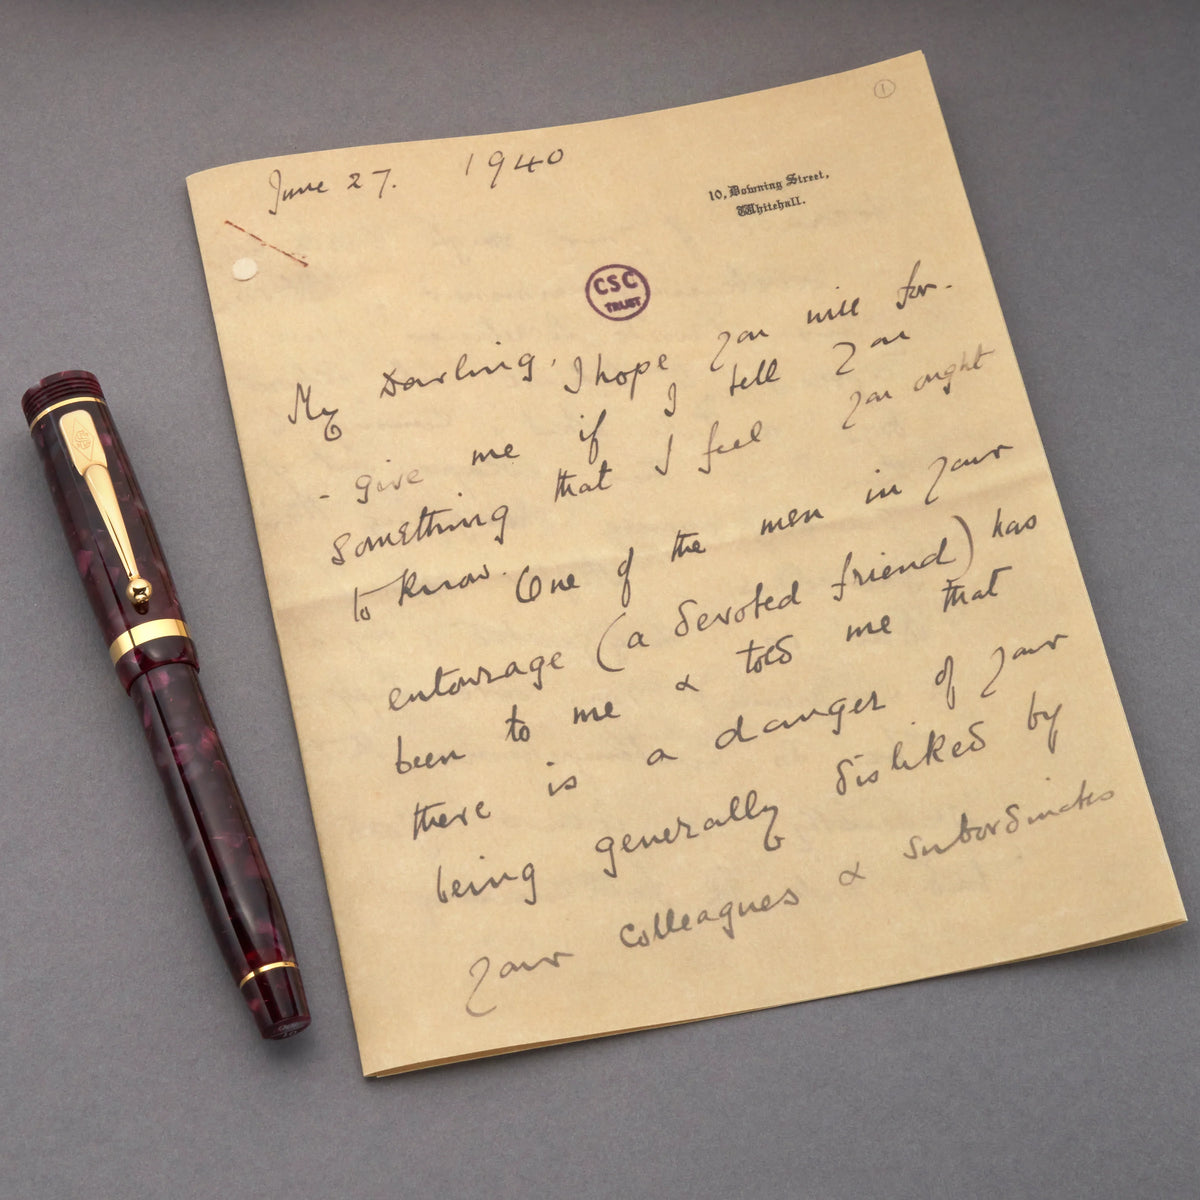 1
June 27. 1940
10, Downing Street,
Whitehall.
CSC
TRUST
My Darling, I hope you will for-
- give me if I tell you
something that I feel you ought
to know. One of the men in your
entourage (a devoted friend) has
been to me & told me that
there is a danger of your
being generally disliked by
your colleagues & subordinates